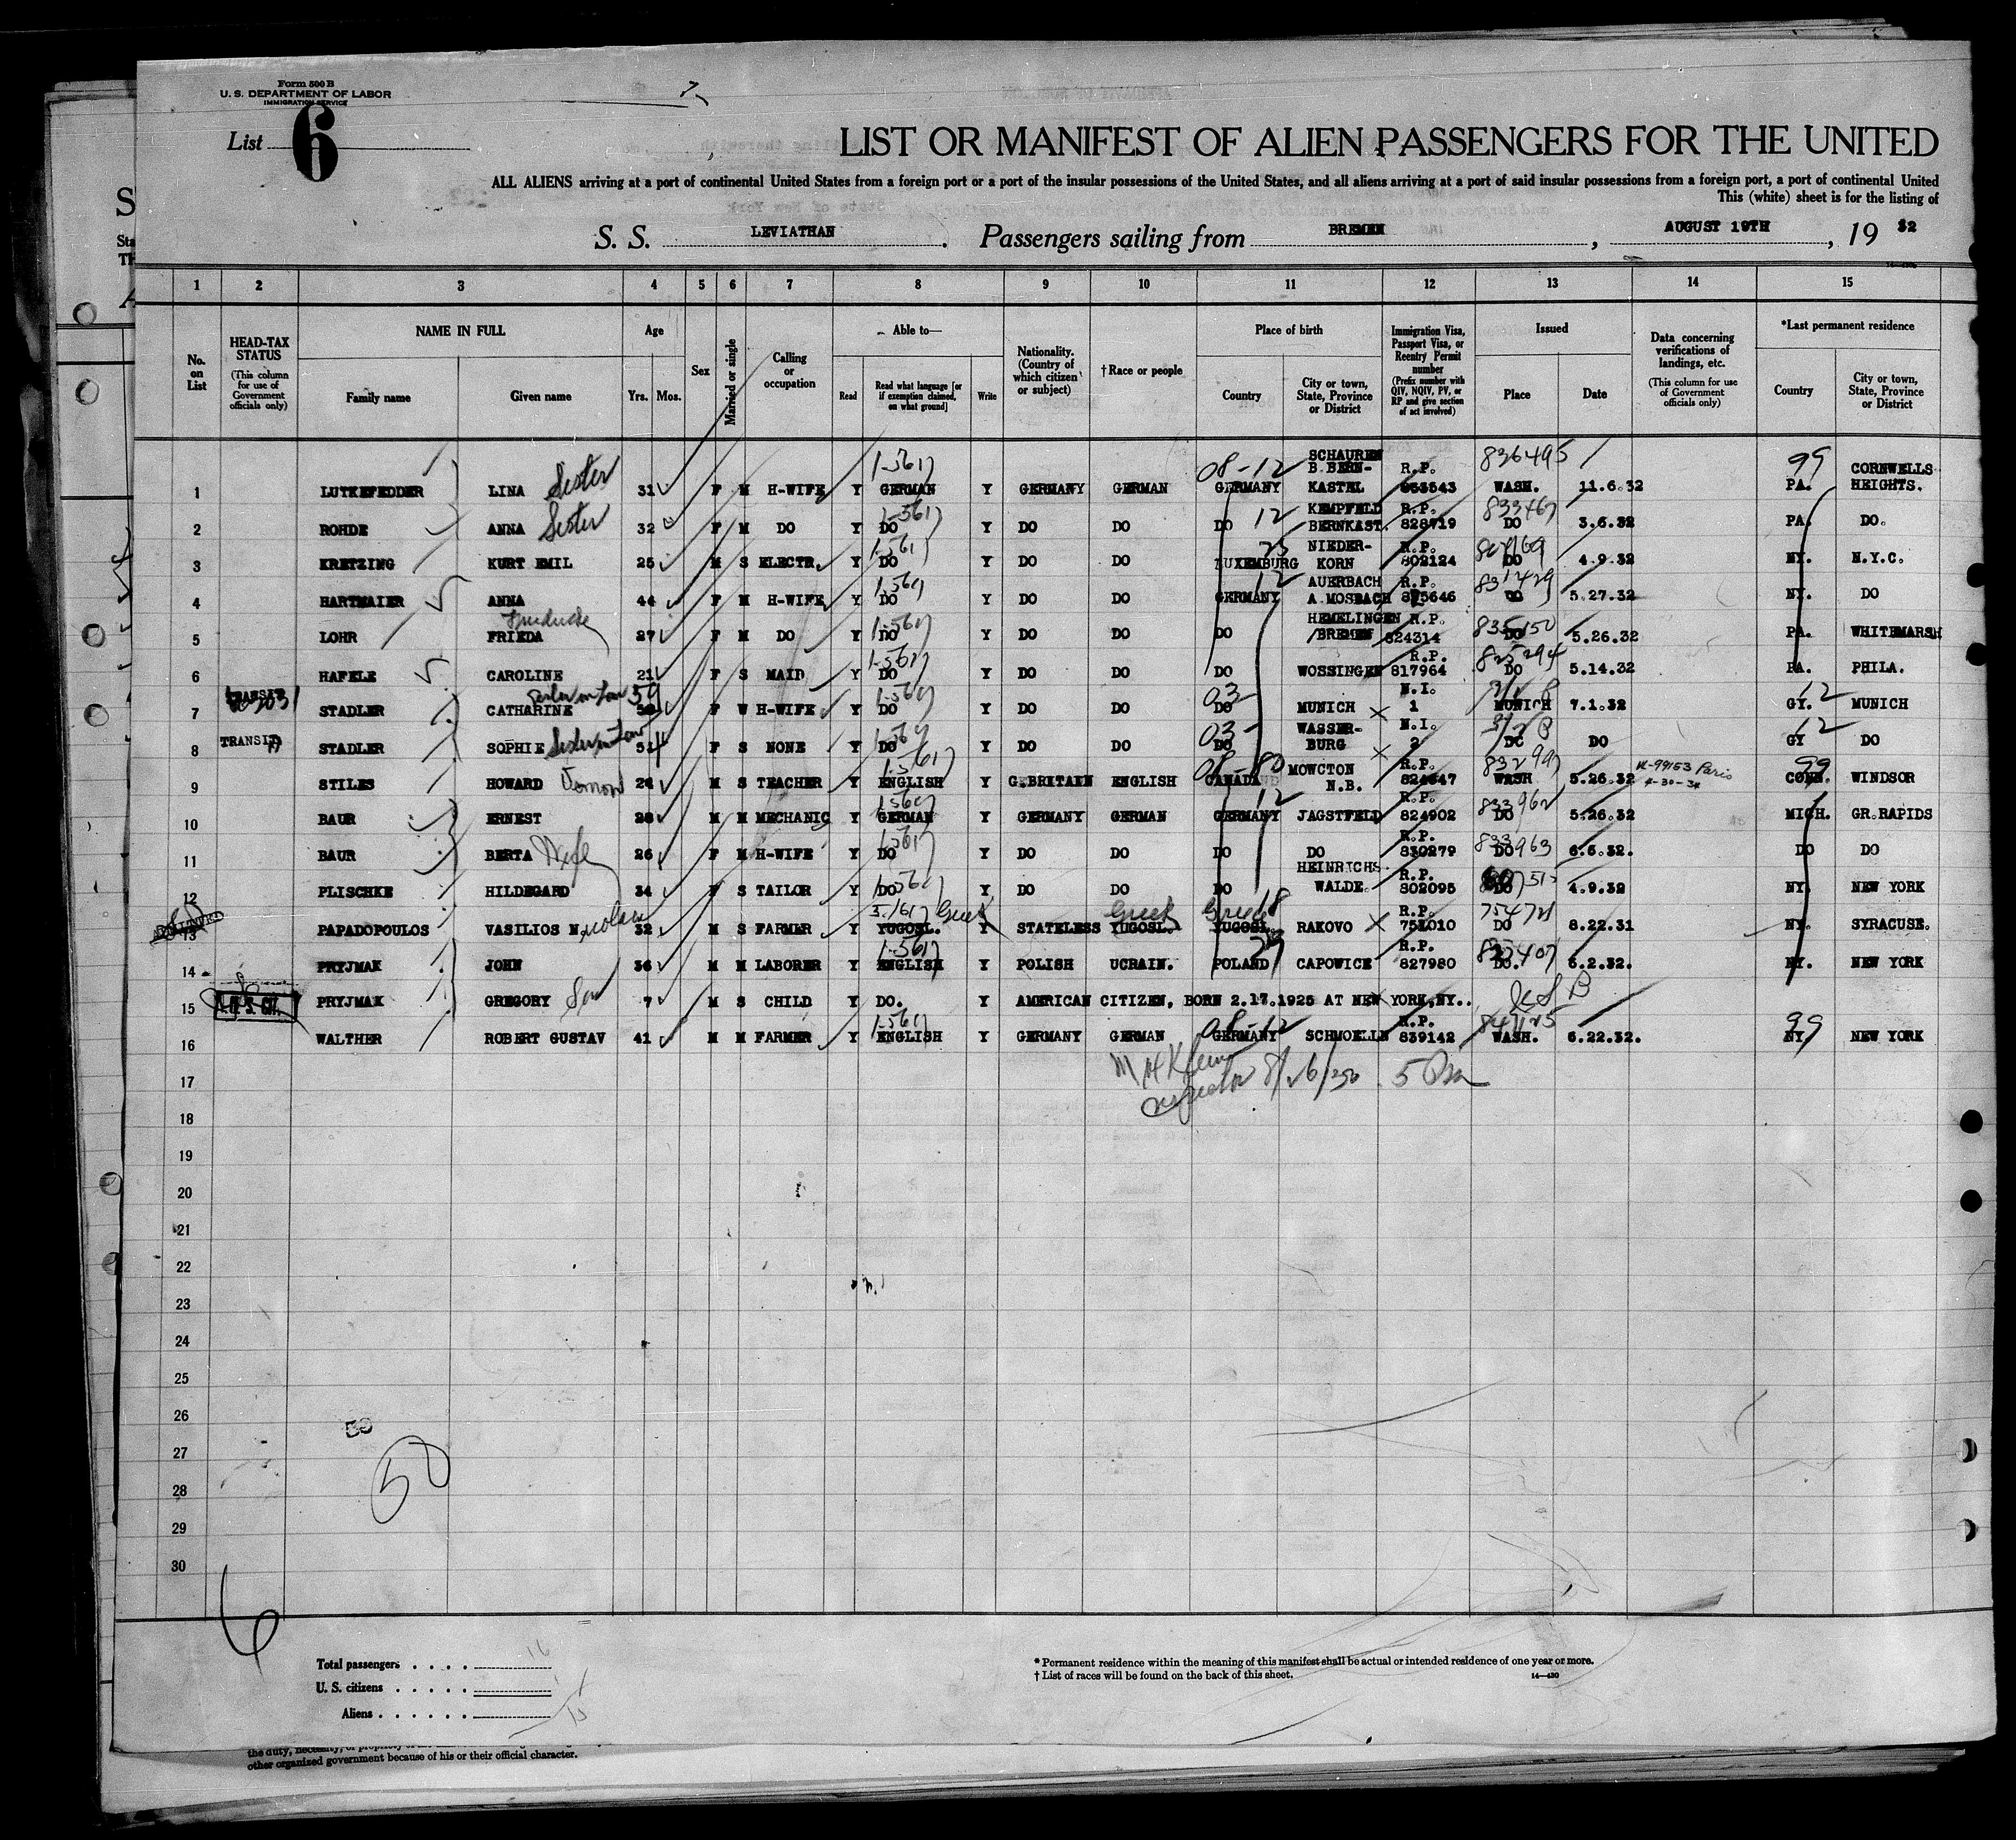 Form 500 B
U. S. DEPARTMENT OF LABOR
IMMIGRATION SERVICE
List 6
LIST OR MANIFEST OF ALIEN PASSENGERS FOR THE UNITED
ALL ALIENS arriving at a port of continental United States from a foreign port or a port of the insular possessions of the United States, and all aliens arriving at a port of said insular possessions from a foreign port, a port of continental United
This (white) sheet is for the listing of
S. S. LEVIATHAN. Passengers sailing from BREMEN, AUGUST 19TH, 19 32
1 2 3 4 5 6 7 8 9 10 11 12 13 14 15
No. on List
HEAD-TAX STATUS (This column for use of Government officials only)
NAME IN FULL Family name Given name
Age Yrs. Mos.
Sex
Married or single
Calling or occupation
Able to— Read Read what language [or if exemption claimed, on what ground] Write
Nationality. (Country of which citizen or subject)
†Race or people
Place of birth Country City or town, State, Province or District
Immigration Visa, Passport Visa, or Reentry Permit number (Prefix number with QIV, NQIV, PV, or RP and give section of act involved)
Issued Place Date
Data concerning verifications of landings, etc. (This column for use of Government officials only)
*Last permanent residence Country City or town, State, Province or District
1 LUTKEFEDDER LINA Sister 31 F M H-WIFE Y GERMAN Y GERMANY GERMAN 08-12 GERMANY SCHAUREN B. BERN-KASTEL R.P. 836495 WASH. 11.6.32 99 PA. CORNWELLS HEIGHTS.
2 ROHDE ANNA Sister 32 F M DO Y DO Y DO DO DO 12 KEMPFELD BERNKAST. R.P. 828719 DO 3.6.32 PA. DO.
3 KRETZING KURT EMIL 25 M S ELECTR. Y DO Y DO DO LUXEMBURG NIEDER-KORN R.P. 802124 DO 4.9.32 NY. N.Y.C.
4 HARTMAIER ANNA 44 F M H-WIFE Y DO Y DO DO 12 GERMANY AUERBACH A MOSBACH R.P. 831429 DO 5.27.32 NY. DO
5 LOHR FRIEDA 27 F M DO Y DO Y DO DO DO HEMELINGEN /BREMEN R.P. 824314 DO 5.26.32 PA. WHITEMARSH
6 HAFELE CAROLINE 21 F S MAID Y DO Y DO DO DO WOSSINGEN R.P. 817964 825294 DO 5.14.32 PA. PHILA.
7 TRANSIT STADLER CATHARINE Sister in Law 59 F W H-WIFE Y DO Y DO DO 03 DO MUNICH N.I. 1 MUNICH 7.1.32 12 GY. MUNICH
8 TRANSIT STADLER SOPHIE Sister in Law F S NONE Y DO Y DO DO 03 DO WASSER-BURG N.I. 2 DO DO 12 GY DO
9 STILES HOWARD Vernon M S TEACHER Y ENGLISH Y G.BRITAIN ENGLISH CANADA MOWCTON N.B. R.P. WASH 5.26.32 Paris 99 CONN. WINDSOR
10 BAUR ERNEST 28 M M MECHANIC Y GERMAN Y GERMANY GERMAN 12 GERMANY JAGSTFELD R.P. 824902 833962 DO 5.26.32 MICH. GR.RAPIDS
11 BAUR BERTA Wife 26 F M H-WIFE Y DO Y DO DO DO DO R.P. 830279 833963 DO 6.6.32. DO DO
12 PLISCHKE HILDEGARD 34 F S TAILOR Y DO Y DO DO DO HEINRICHS-WALDE. R.P. 802095 DO 4.9.32 NY. NEW YORK
13 PAPADOPOULOS VASILIOS Nicolas 32 M S FARMER Y YUGOSL. Greek Y STATELESS YUGOSL. Greek YUGOSL. Greece RAKOVO R.P. DO 8.22.31 NY. SYRACUSE.
14 PRYJMAK JOHN 36 M M LABORER Y ENGLISH Y POLISH UCRAIN. POLAND CAPOWICE R.P. 827980 DO. 6.2.32. NY. NEW YORK
15 U. S. CIT. PRYJMAK GREGORY Son 7 M S CHILD Y DO. Y AMERICAN CITIZEN, BORN 2.17.1925 AT NEW YORK,NY..
16 WALTHER ROBERT GUSTAV 41 M M FARMER Y ENGLISH Y GERMANY GERMAN 08-12 GERMANY SCHMOELLN R.P. 839142 WASH. 6.22.32. 99 NY. NEW YORK
17
18
19
20
21
22
23
24
25
26
27
28
29
30
50
6
Total passengers 16
U. S. citizens 1
Aliens 15
* Permanent residence within the meaning of this manifest shall be actual or intended residence of one year or more.
† List of races will be found on the back of this sheet.
14—430
other organized government because of his or their official character.